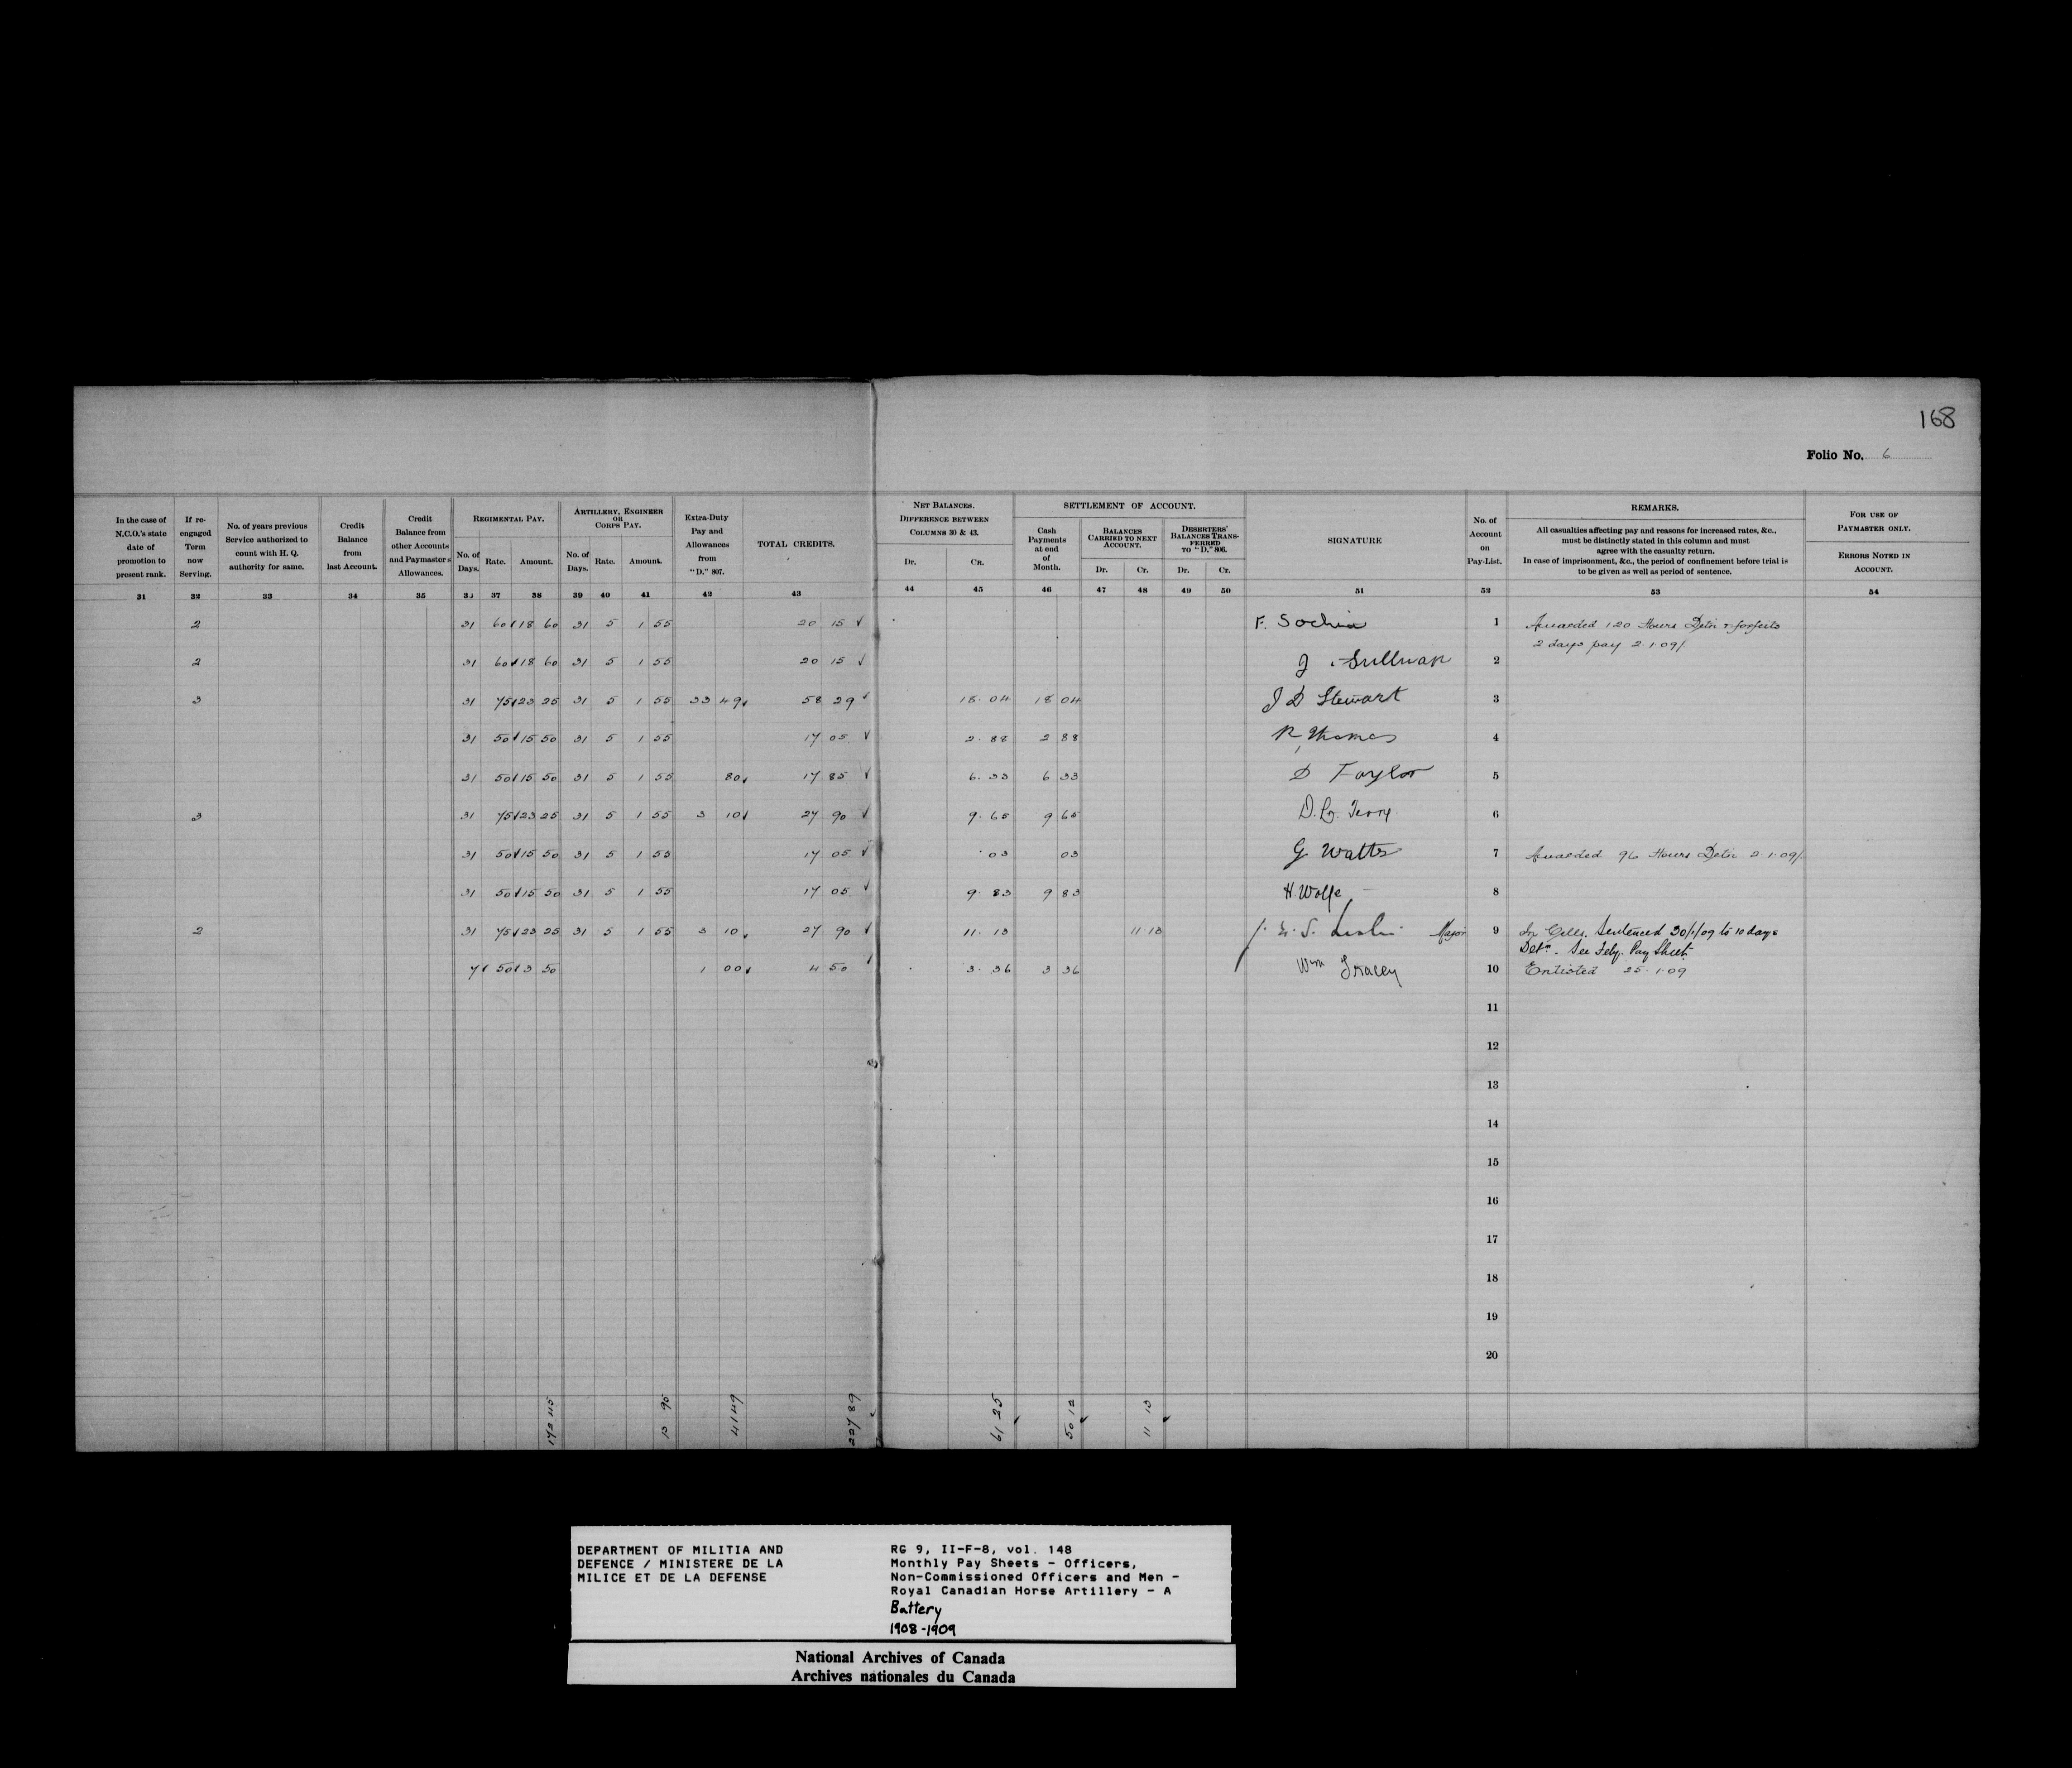 168
Folio No. 6
In the case of N.C.O.'s state date of promotion to present rank.
If re-engaged Term now Serving.
No. of years previous Service authorized to count with H. Q. authority for same.
Credit Balance from last Account.
Credit Balance from other Accounts and Paymaster's Allowances.
REGIMENTAL PAY.
No. of Days. Rate. Amount.
ARTILLERY, ENGINEER OR CORPS PAY.
No. of Days. Rate. Amount.
Extra-Duty Pay and Allowances from "D." 807.
TOTAL CREDITS.
NET BALANCES. DIFFERENCE BETWEEN COLUMNS 30 & 43.
Dr. Cr.
SETTLEMENT OF ACCOUNT.
Cash Payments at end of Month.
BALANCES CARRIED TO NEXT ACCOUNT.
Dr. Cr.
DESERTERS' BALANCES TRANSFERRED TO "D." 806.
Dr. Cr.
SIGNATURE
No. of Account on Pay-List.
REMARKS.
All casualties affecting pay and reasons for increased rates, &c., must be distinctly stated in this column and must agree with the casualty return.
In case of imprisonment, &c., the period of confinement before trial is to be given as well as period of sentence.
FOR USE OF PAYMASTER ONLY.
ERRORS NOTED IN ACCOUNT.
31 32 33 34 35 36 37 38 39 40 41 42 43 44 45 46 47 48 49 50 51 52 53 54
2 31 60 18 60 31 5 1 55 20 15 F. Sochia 1 Awarded 120 Hours Detn & forfeits
2 days pay 2.1.09/.
2 31 60 18 60 31 5 1 55 20 15 J. Sullivan 2
3 31 75 23 25 31 5 1 55 33 49 58 29 18.04 18 04 J D Stewart 3
31 50 15 50 31 5 1 55 17 05 2.88 2 88 R Thomas 4
31 50 15 50 31 5 1 55 80 17 85 6.33 6 33 D Taylor 5
3 31 75 23 25 31 5 1 55 3 10 27 90 9.65 9 65 D. Terry 6
31 50 15 50 31 5 1 55 17 05 .03 03 G Watts 7 Awarded 96 Hours Detn 2.1.09/.
31 50 15 50 31 5 1 55 17 05 9.83 9 83 H. Wolfe 8
2 31 75 23 25 31 5 1 55 3 10 27 90 11.13 11.13 Leslie Major 9 In Cells. Sentenced 30/1/09 to 10 days
Detn. See Feby. Pay Sheet.
7 50 3 50 1 00 4 50 3.36 3 36 Wm Tracey 10 Enlisted 25.1.09
11
12
13
14
15
16
17
18
19
20
172 45 13 95 41 49 227 89 61 25 50 12 11 13
DEPARTMENT OF MILITIA AND
DEFENCE / MINISTERE DE LA
MILICE ET DE LA DEFENSE
RG 9, II-F-8, vol. 148
Monthly Pay Sheets - Officers,
Non-Commissioned Officers and Men -
Royal Canadian Horse Artillery - A
Battery
1908-1909
National Archives of Canada
Archives nationales du Canada